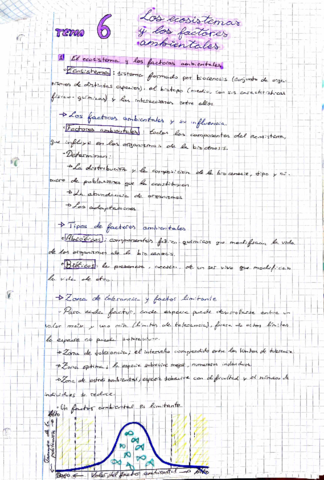 TEMA 6
Los ecosistemas
y los factores
ambientales
1) El ecosistema y los factores ambientales
• Ecosistema: sistema formado por biocenosis (conjunto de orga-
nismos de distintas especies), el biotopo (medio, con sus características
físico-químicas) y las interacciones entre ellos.
→ Los factores ambientales y su influencia
• Factores ambientales: todos los componentes del ecosistema
que influyen en los organismos de la biocenosis.
• Determinan:
→ La distribución y la composición de la biocenosis, tipo y nú-
mero de poblaciones que la constituyen
→ La abundancia de organismos
→ Las adaptaciones
→ Tipos de factores ambientales
• Abióticos: componentes físico químicos que modifican la vida
de los organismos de la biocenosis.
• Bióticos: la presencia de un ser vivo que modifica
la vida de otro.
→ Zona de tolerancia y factor limitante
- Para cada factor, cada especie puede desarrollarse entre un
valor máx y uno mín (límites de tolerancia), fuera de estos límites
la especie no puede
→ Zona de tolerancia: el intervalo comprendido entre los límites de tolerancia
→ Zona óptima: la especie mejor, numerosos individuos
→ Zona de estrés ambiental: especie sobrevive con dificultad y el número de
individuos se reduce.
- Un factor ambiental es limitante
Alto
Bajo Valor del factor ambiental Alto